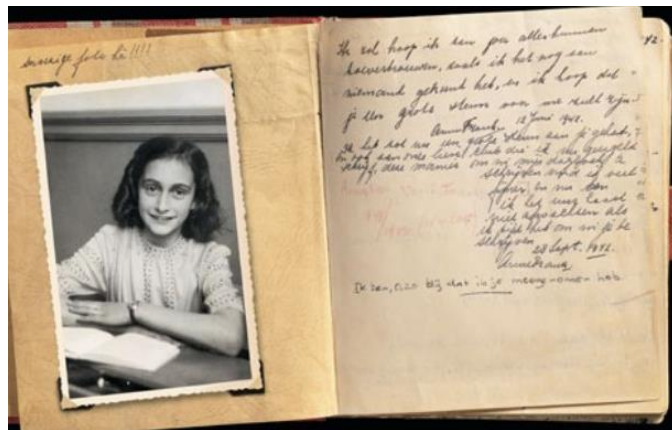 snoezige foto hè!!!!
42.
Ik zal hoop ik aan jou alles kunnen
toevertrouwen, zoals ik het nog aan
niemand gekund heb, en ik hoop dat
je een grote steun voor me zult zijn.
Anne Frank. 12 Juni 1942.
Ik heb tot nu een grote steun aan je gehad,
en ook aan onze lieve club die ik nu geregeld
schrijf, deze manier om in mijn dagboek te
schrijven vind ik veel
fijner en nu kan
ik het uur haast
niet afwachten als
ik tijd heb om in je te
schrijven.
28 Sept. 1942.
Anne Frank
Ik ben, o zo blij dat ik je meegenomen heb.